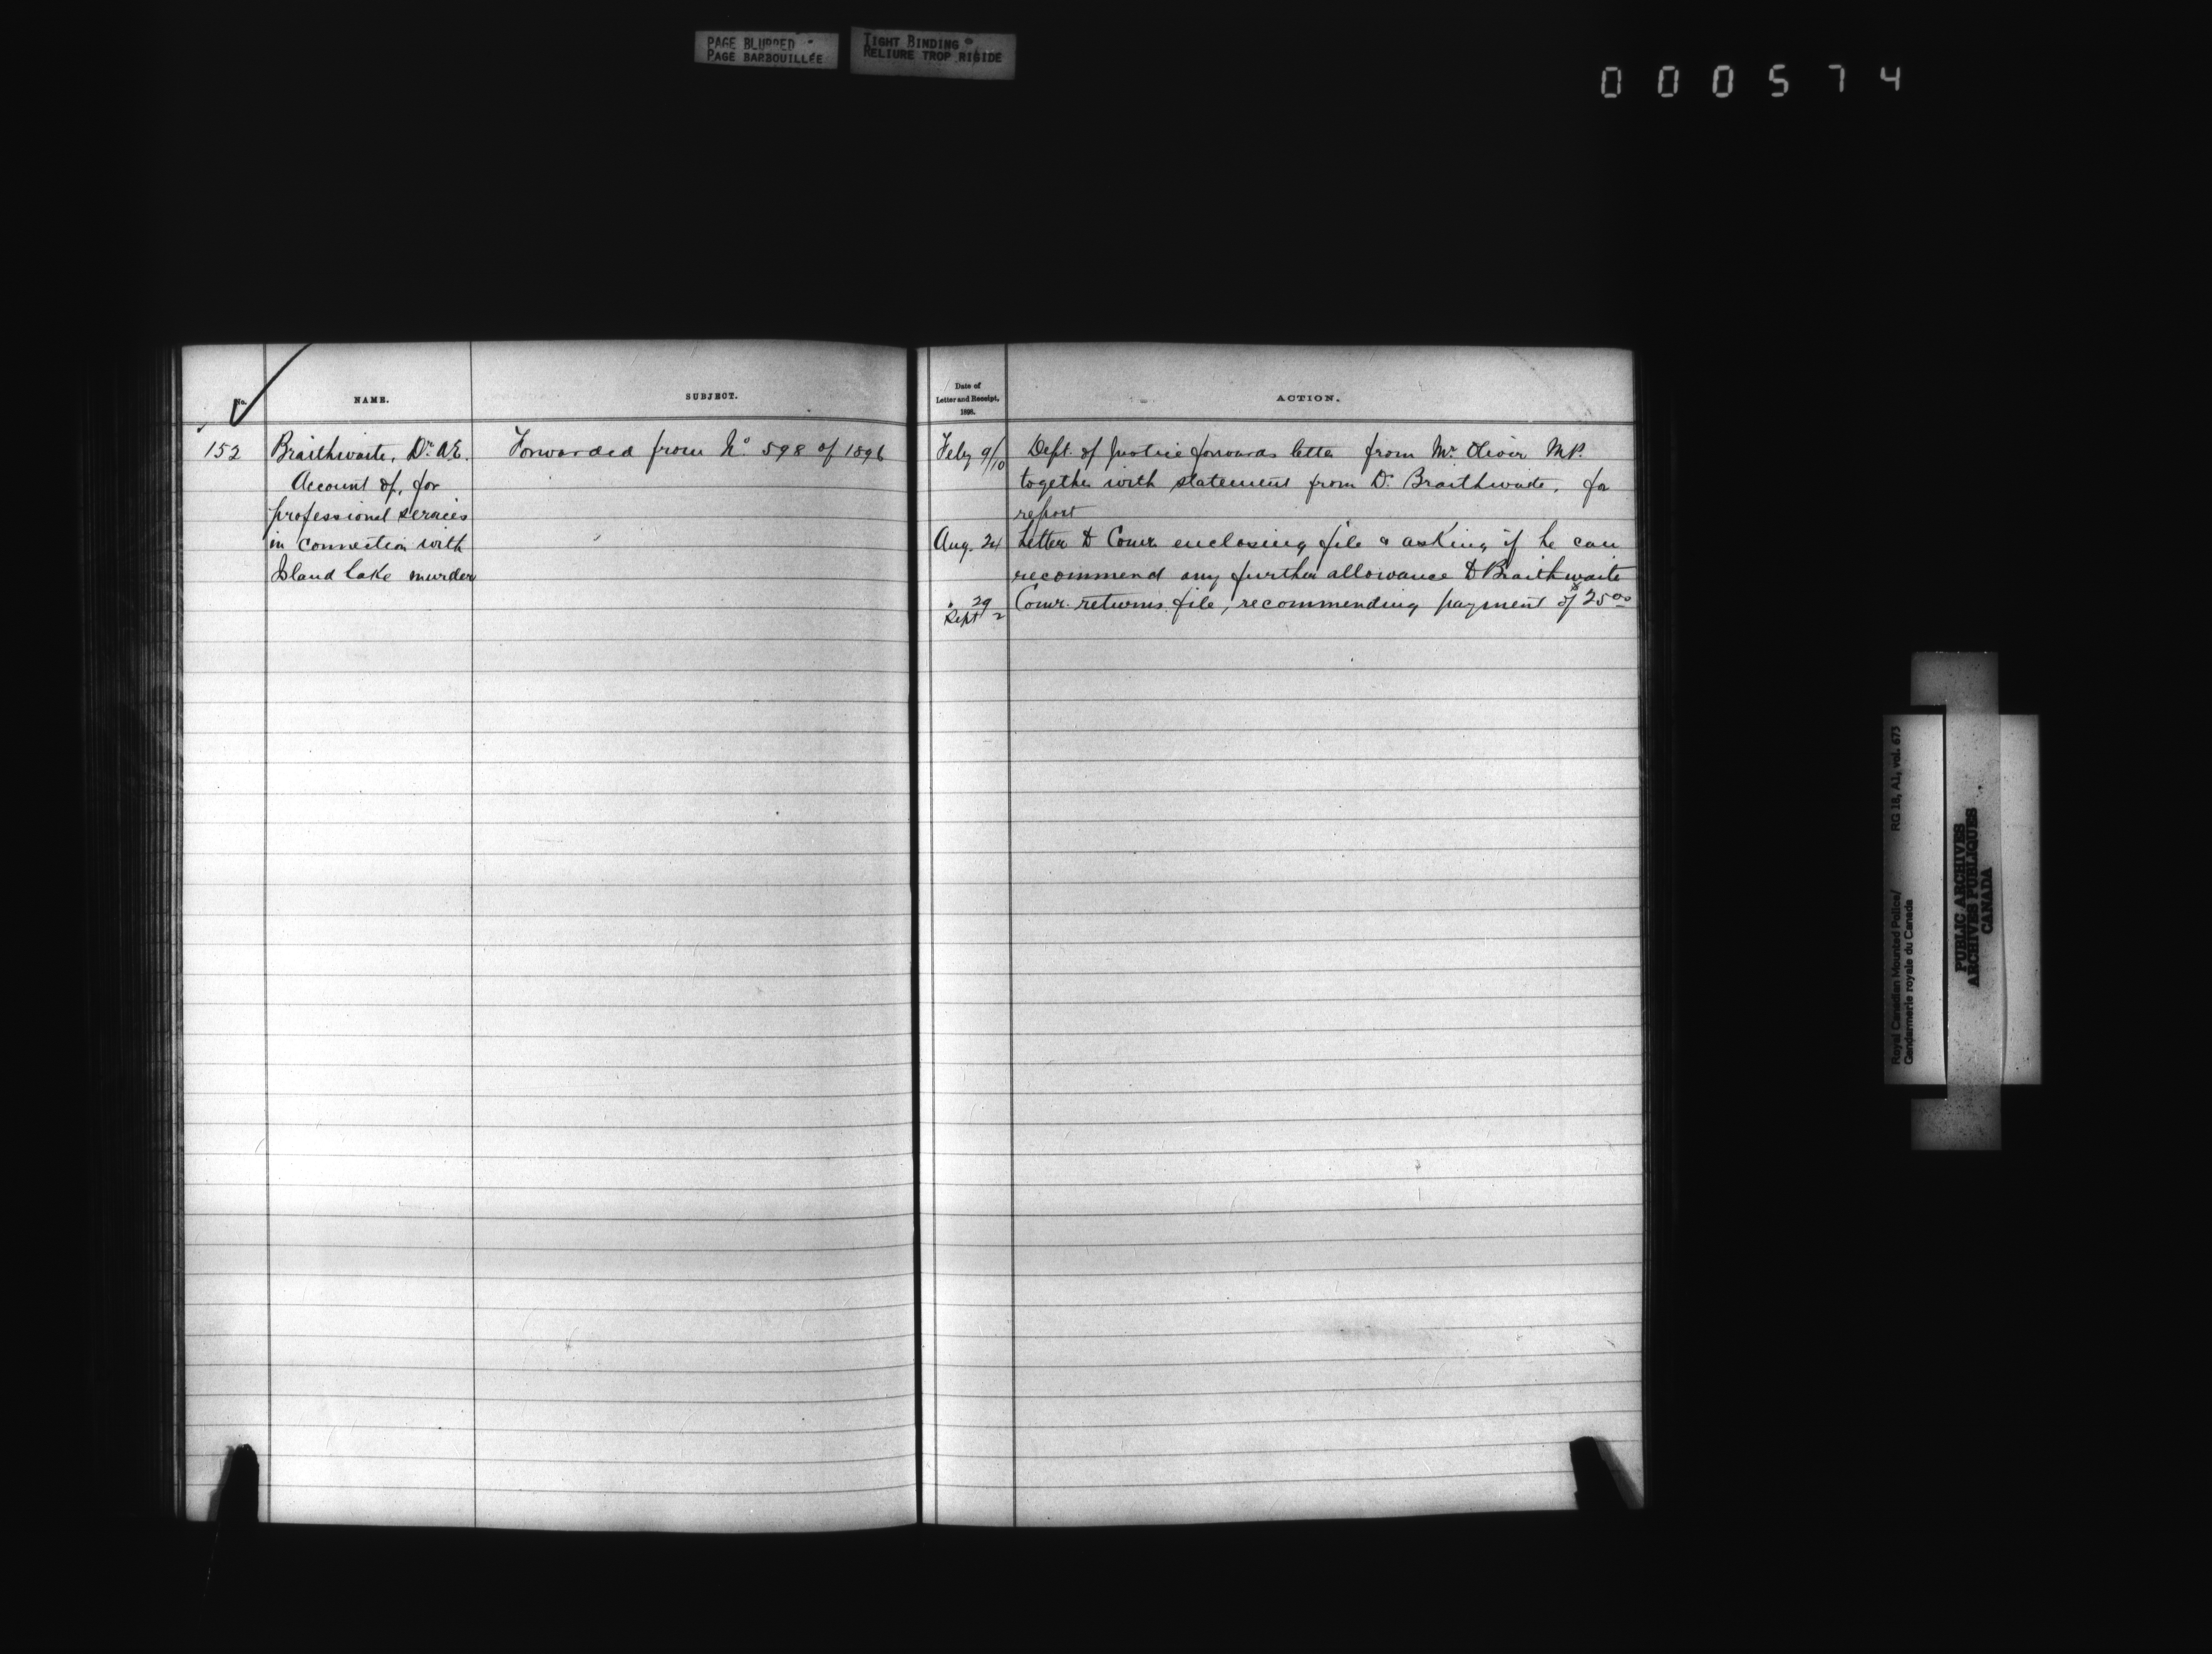 PAGE BLURRED
PAGE BARBOUILLÉE
TIGHT BINDING
RELIURE TROP RIGIDE
000574
No.
NAME.
SUBJECT.
Date of
Letter and Receipt,
1898.
ACTION.
152
Braithwaite, Dr. A.E.
Account of, for
professional services
in connection with
Island Lake murder
Forwarded from No 598 of 1896
Feby 9/10
Dept. of Justice forwards letter from Mr. Oliver M.P.
together with statement from Dr. Braithwaite, for
report
Aug. 24
Letter to Comr. enclosing file & asking if he can
recommend any further allowance to Braithwaite
" 29
Sept 2
Comr. returns file, recommending payment of $25.00
Royal Canadian Mounted Police/
Gendarmerie royale du Canada
RG 18, A1, vol. 673
PUBLIC ARCHIVES
ARCHIVES PUBLIQUES
CANADA